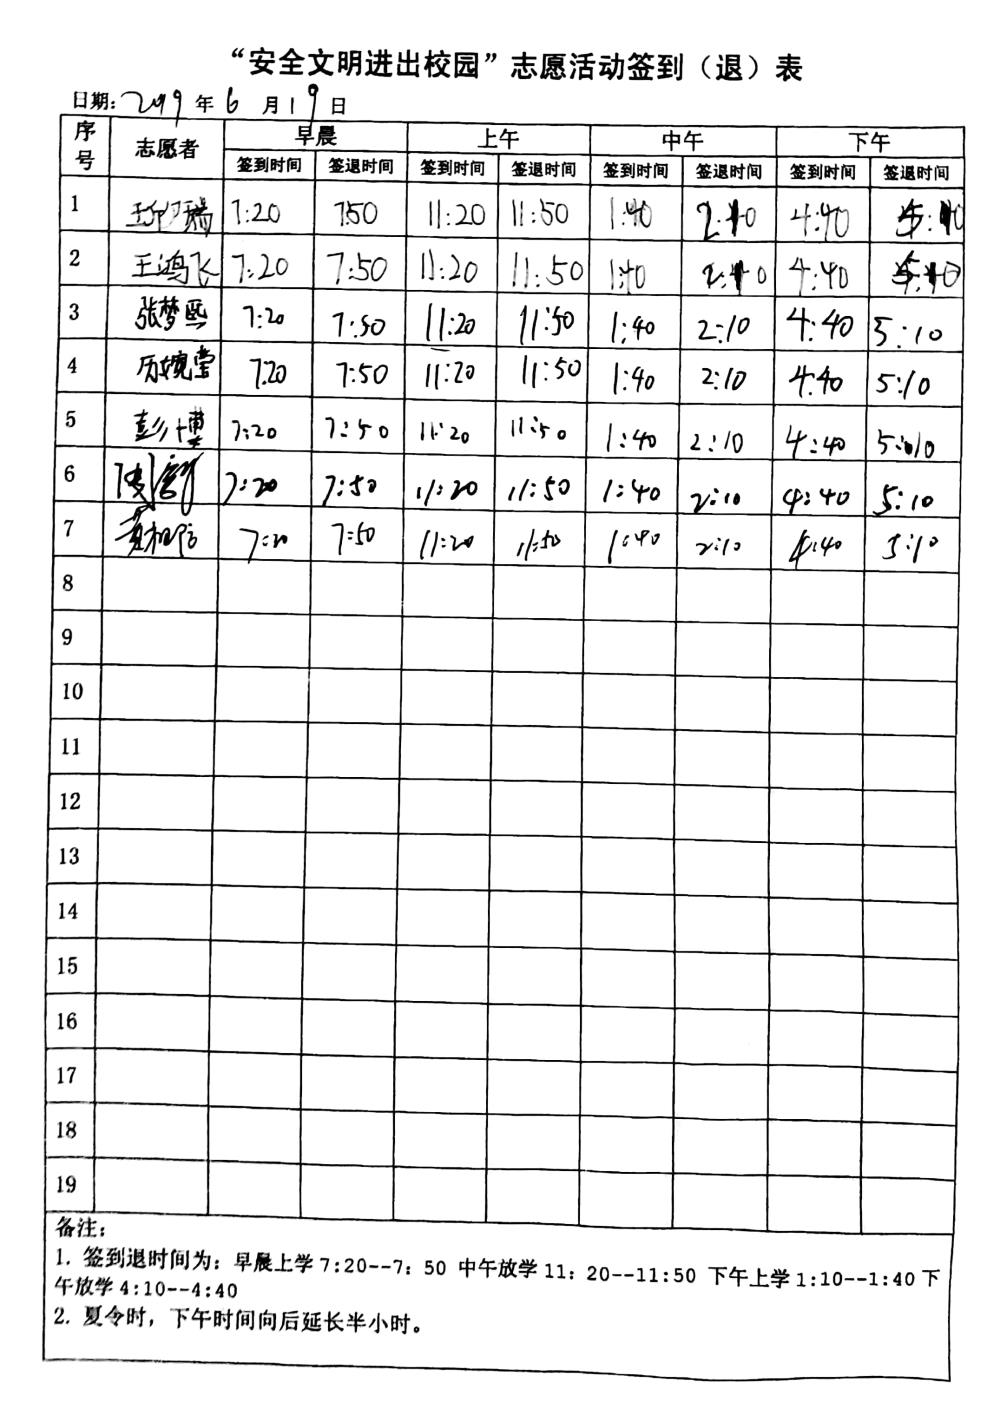 “安全文明进出校园”志愿活动签到（退）表
日期：2019年6月19日
序号 志愿者 早晨 上午 中午 下午
签到时间 签退时间 签到时间 签退时间 签到时间 签退时间 签到时间 签退时间
1 王 瑞 7:20 7:50 11:20 11:50 1:40 2:10 4:40 5:10
2 王鸿飞 7:20 7:50 11:20 11:50 1:40 2:10 4:40 5:10
3 张梦熙 7:20 7:50 11:20 11:50 1:40 2:10 4:40 5:10
4 历婉莹 7:20 7:50 11:20 11:50 1:40 2:10 4:40 5:10
5 彭博 7:20 7:50 11:20 11:50 1:40 2:10 4:40 5:10
6 7:20 7:50 11:20 11:50 1:40 2:10 4:40 5:10
7 7:20 7:50 11:20 11:50 1:40 2:10 4:40 5:10
8
9
10
11
12
13
14
15
16
17
18
19
备注：
1. 签到退时间为：早晨上学7:20--7：50 中午放学11：20--11:50 下午上学1:10--1:40下
午放学4:10--4:40
2. 夏令时，下午时间向后延长半小时。